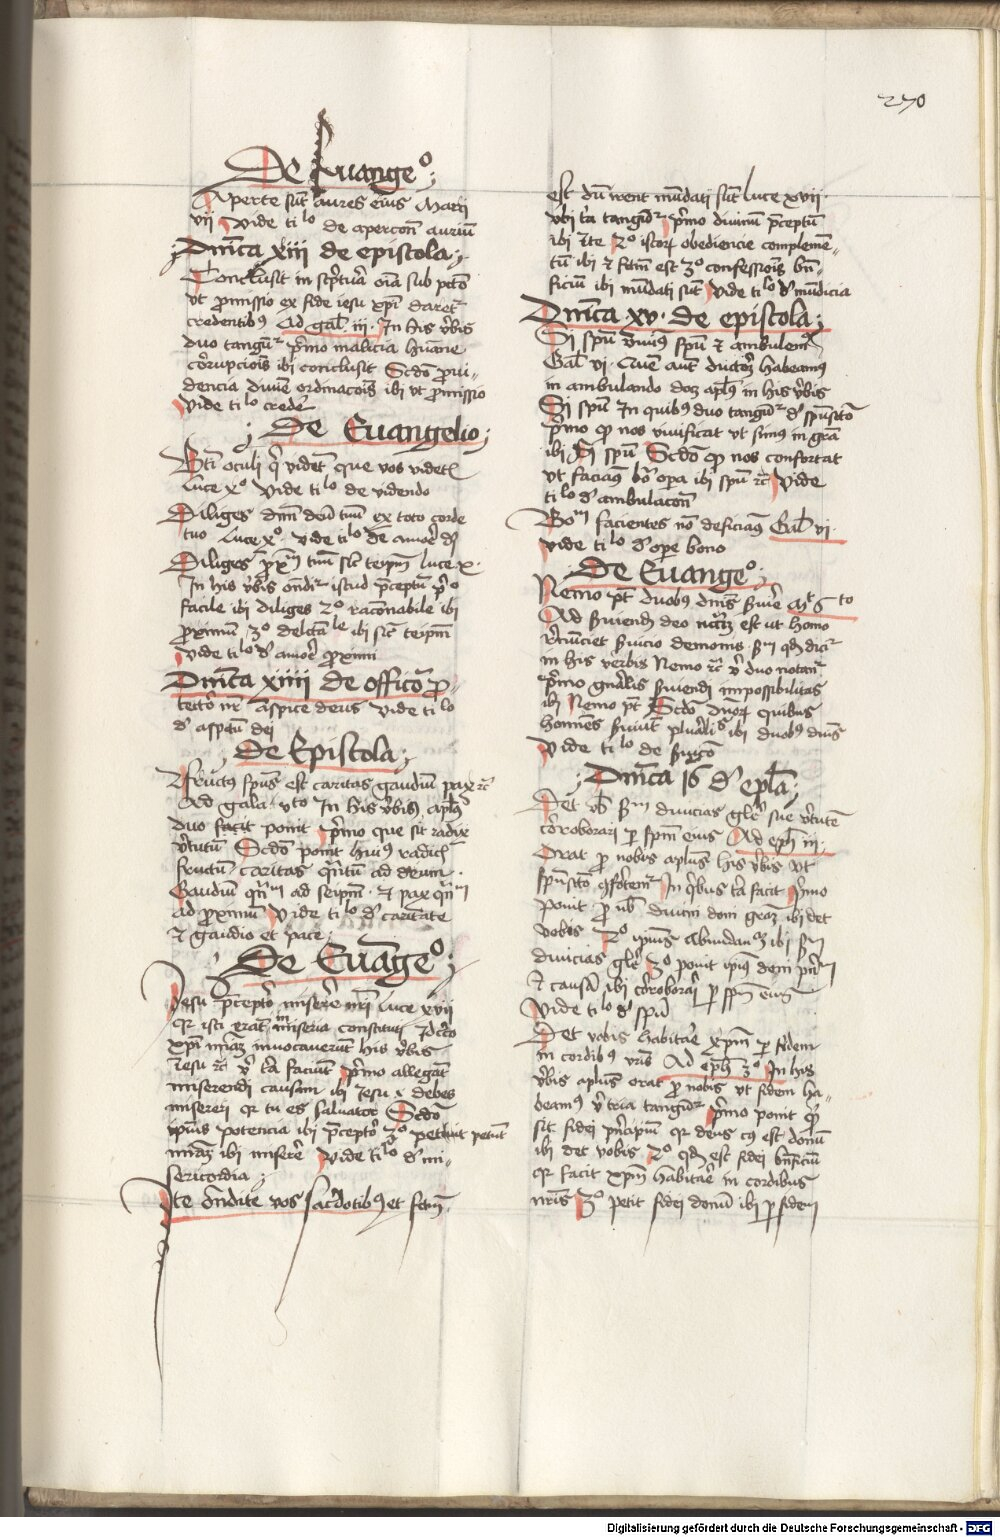 270
De Euange°
Aperte sūt aures eius Marci
vii vide ti^lo de apercōn auriū
Dnīca xiii de epistola
Conclusit in scptura oīa sub pctō
vt promissio ex fide iesu xpi daret^r
credentibꝯ Ad gal. iii. In his v̄bis
duo tangū^r p̄mo malicia humane
corrupciois ibi conclusit Scdō proui-
dencia diuīe ordinacois ibi vt promissio
vide ti^lo crede
De Euangelio
Bti oculi q̄ vident que vos videtꝭ
Luce x° vide ti^lo de videndo
Diliges dnm deū tuū ex toto corde
tuo Luce x°. vide ti^lo de amore dī
Diliges p̄x^m tuū sic teipm luce x.
In his v̄bis ondi^r istud p̄ceptū p°
facile ibi diliges 2° racōnabile ibi
proximū 3° delecta^le ibi sic teipm
vide ti^lo d' amore proximi
Dnīca xiiii de officō pro-
tector nr aspice deus vide ti^lo
d' aspctu dei
De Epistola
Fructus spūs est caritas gaudiū pax rc̄
Ad gala. v^to In his v̄bis aplꝯ
duo facit ponit p̄mo que sit radix
v̄tutū Scdō ponit huiꝯ radicꝭ
fructū caritas qntū ad deum.
Gaudiū qn^m ad seipm. et pax qn^m
ad proximū vide ti^lo d' caritate
et gaudio et pace
De Euange°
Iesu p̄cepto^r miserere nri Luce xvii
qr isti erāt in miseria constituti Idcirco
xpi miaz inuocauerūt his v̄bis
Iesu rc̄ v̄ tria faciūt p̄mo allegāt
miserendi causam ibi Iesu x debes
misereri qr tu es saluator Scdō
ipsius potencia ibi p̄cepto^r 3° petiuit petiūt
miaz ibi miserere vide ti^lo d' mi-
sericordia
Ite ondite vos sacerdotibꝯ et fctm
est dū irent mūdati sūt luce xvii.
vbi tria tangūt^r p̄mo diuinū p̄ceptū
ibi Ite 2° istorꝝ obediencie complemē-
tū ibi et fctm est 3° confessiois bn-
ficiū ibi mūdati sūt vide ti^lo d' mūdicia
Dnīca xv. de epistola
Si spū viuimꝯ spū et ambulemꝯ
Gal. vi. Cum aūt ductorē habeamꝯ
in ambulando docz aplꝯ in his v̄bis
Si spū In quibꝯ duo tangūt^r d' spūscto
p̄mo qp nos viuificat vt simꝯ in gra
ibi Si spū Scdō qp nos confortat
vt faciamꝯ bo^a opera ibi spū rc̄ vide
ti^lo d' ambulacōn
Bo^m facientes nō deficiamꝯ Gal. vi.
vide ti^lo d' opere bono
De Euange°
Nemo pt duobꝯ dnis suire Mt 6^to
Ad suiendū deo nccm est vt homo
renunciet suicio demonis. s^m qd dicit^r
in his verbis Nemo rc̄ v̄ duo notan^r
p̄mo gnalis suiendi impossibilitas
ibi Nemo pt Scdō dnorꝝ quibus
homines suiūt pluralis ibi duobꝯ dnis
vide ti^lo de suico
Dnica 16 d' epla
Det vb s^m diuicias glie sue v̄tutē
corroborari per spm eius Ad eph. iii.
Orat pro nobis aplus his v̄bis vt
spūscto gfortem^r In qbus tria facit p̄mo
ponit pro nb diuini doni graz ibi det
vobis 2° ipius abundanciā ibi s^m
diuicias glie 3° ponit ipiꝯ doni pn^m
et causa ibi corroborari per spm eius
vide ti^lo d' spū
Det vobis habitare xpm per fidem
in cordibꝯ vris Ad eph. 3° In his
v̄bis aplus orat pro nobis vt fidem ha-
beamꝯ v̄ tria tangūt^r p̄mo ponit qd
sit fidei pncipiū qr deus cꝯ est donū
ibi det vobis 2° qd est fidei bnficiū
qr facit xpm habitare in cordibus
nris 3° petit fidei donū ibi per fidem
Digitalisierung gefördert durch die Deutsche Forschungsgemeinschaft - DFG